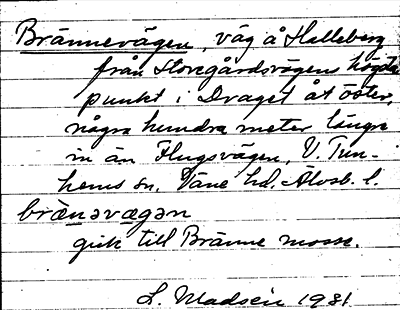 Brännevägen, väg å Halleberg
från Storegårdsvägens högsta
punkt i Draget åt öster,
några hundra meter längre
in än Flugsvägen, V. Tun-
hems sn. Väne hd. Älvsb. l.
brænəvægən
gick till Bränne mosse.
L. Madsén 1981